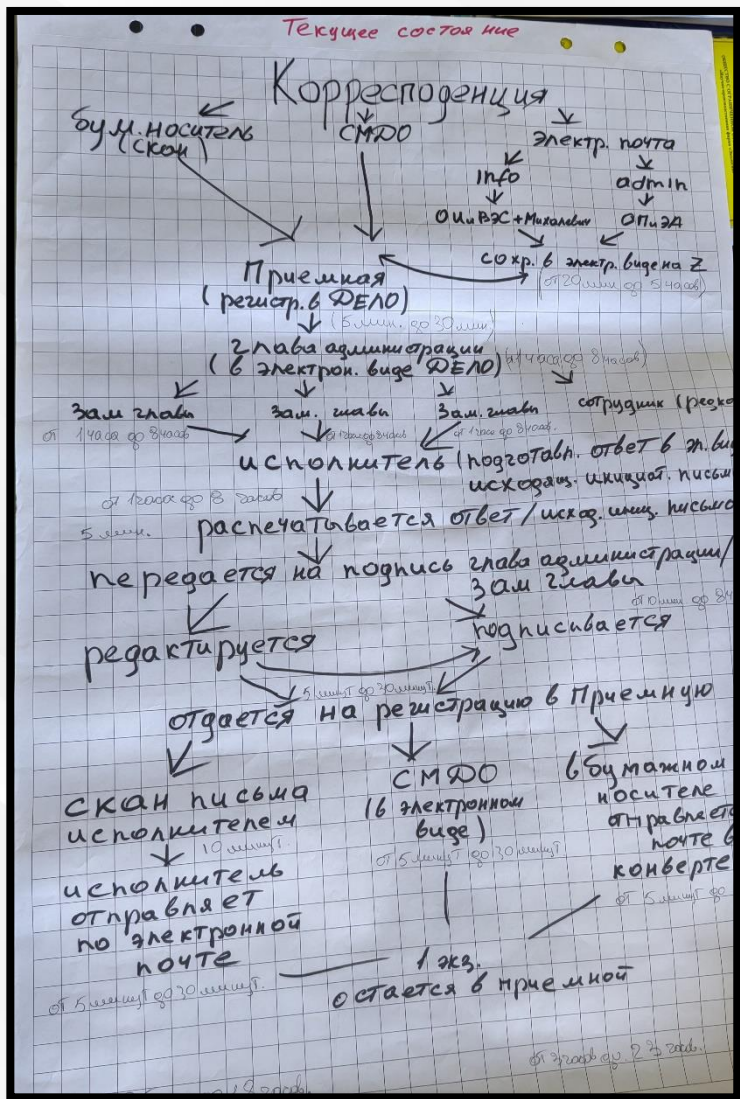 Текущее состояние
Корресподенция
бум. носитель
(скан)
СМДО
электр. почта
info
admin
ОИиВЭС+Михалевич
ОПиЭА
сохр. в электр. виде на Z
(от 20 мин до 5 часов)
Приемная
(регистр. в ДЕЛО)
(5 мин. до 30 мин)
глава администрации
(в электрон. виде ДЕЛО)
(1 часа до 8 часов)
Зам главы
Зам. главы
Зам. главы
сотрудник (редко
от 1 часа до 8 часов
от 1 час до 8 часов
от 1 часа до 8 часов
исполнитель (подготавл. ответ в эл. вид
исходящ. инициат. письм
от 1 часа до 8 часов
5 мин.
распечатывается ответ/исход. иниц. письмо
передается на подпись глава администрации/
зам главы
от 10 мин до 8 ч
редактируется
подписывается
5 минут до 30 минут.
отдается на регистрацию в Приемную
скан письма
исполнителем
10 минут.
исполнитель
отправляет
по электронной
почте
от 5 минут до 30 минут.
СМДО
(в электронном
виде)
от 5 минут до 30 минут
в бумажном
носителе
отправляетс
почте в
конверте
от 15 минут до
1 экз.
остается в приемной
от 3 часов до 23 часов.